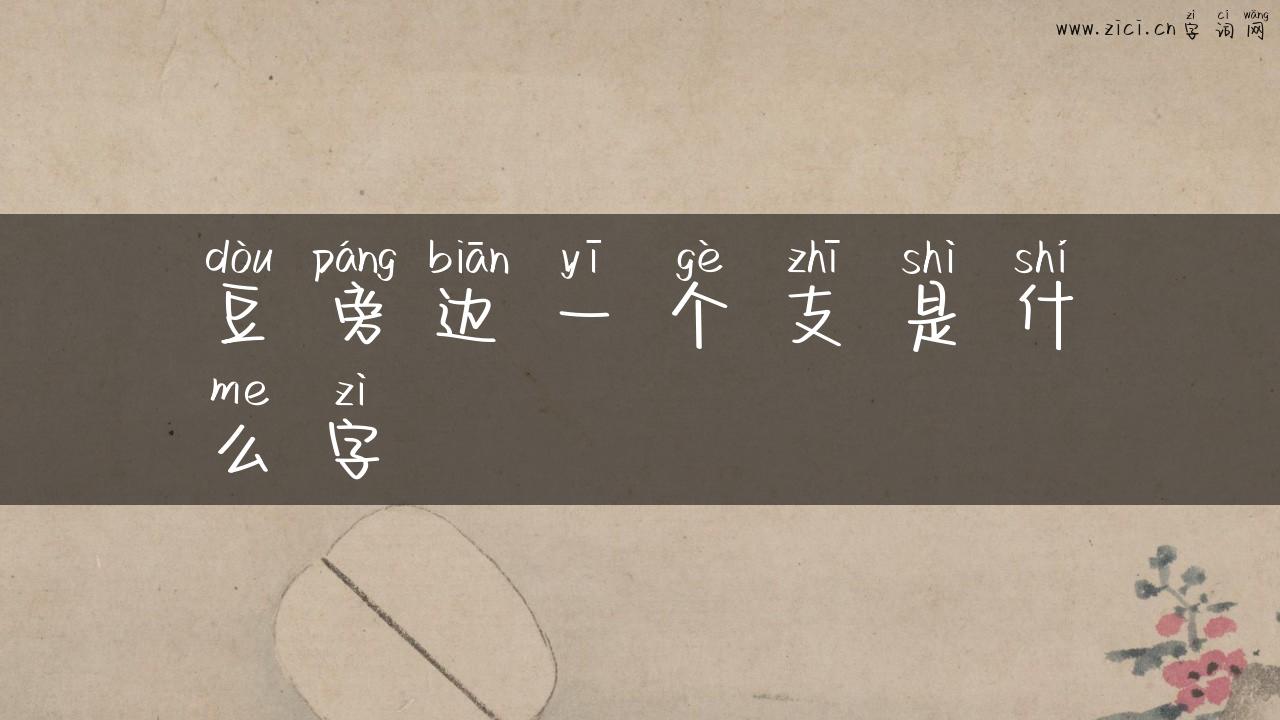 zì cí wǎng
www.zici.cn 字词网
dòu páng biān yī gè zhī shì shí
豆旁边一个支是什
me zì
么字